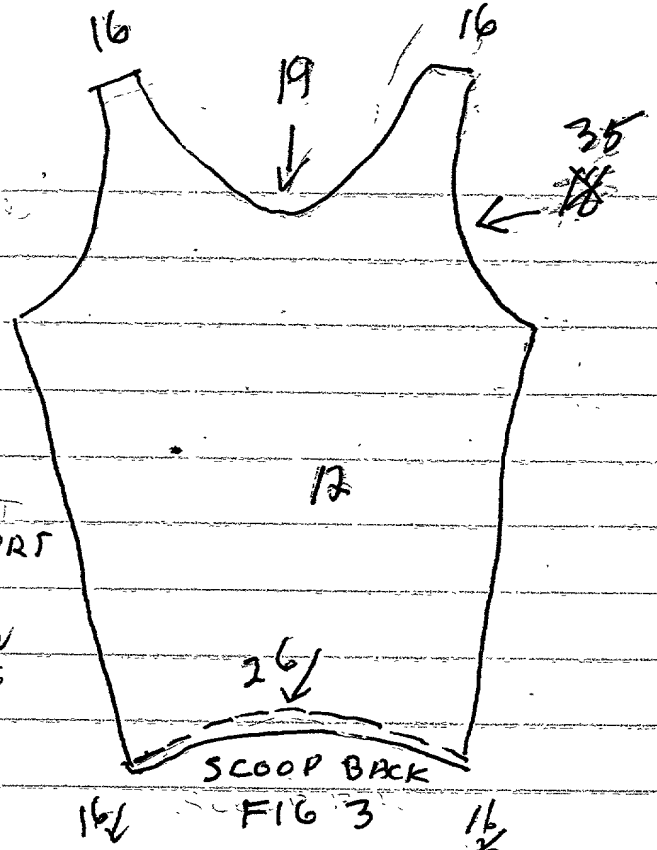 16 16
19
35
12
26
SCOOP BACK
16 FIG 3 16